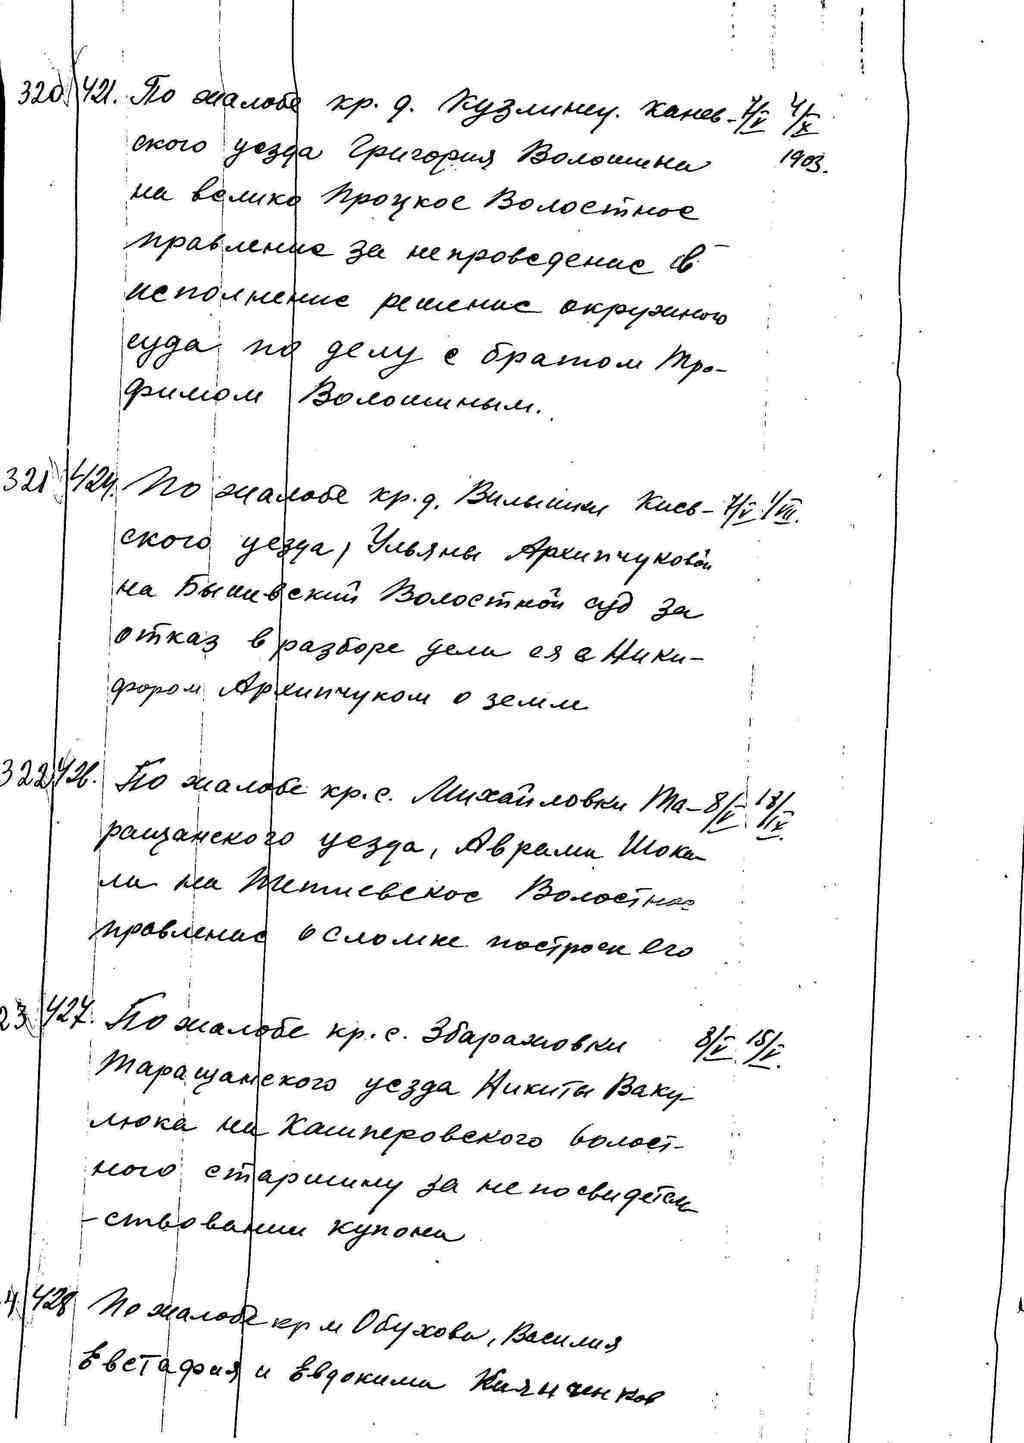 320 421. По жалобе кр. д. Кузминец. Канев- 7/V 4/X
ского уезда Григория Волошина 1903.
на велико Процкое Волостное
правление за непроведение в
исполнение решение окружного
суда по делу с братом Тро-
фимом Волошиным.
321 424. По жалобе кр. д. Вильшки Киев- 7/V 1/VIII.
ского уезда, Ульяны Архипчуковой
на Бышевский Волостной суд за
отказ в разборе дела ея с Ники-
фором Архипчуком о земле
322 426. По жалобе кр. с. Михайловки Та- 8/V 18/IX.
ращанского уезда, Аврама Шока-
ла на Тетиевское Волостное
правление о сломке построек его
23 427. По жалобе кр. с. Збаражовки 8/V 15/V.
Таращанского уезда Никиты Ваку-
люка на Кашперовского волост-
ного старшину за непосвидетель
-ствовании купона
4 428 По жалобе кр м Обухова, Василия
Евстафия и Евдокима Киянченков